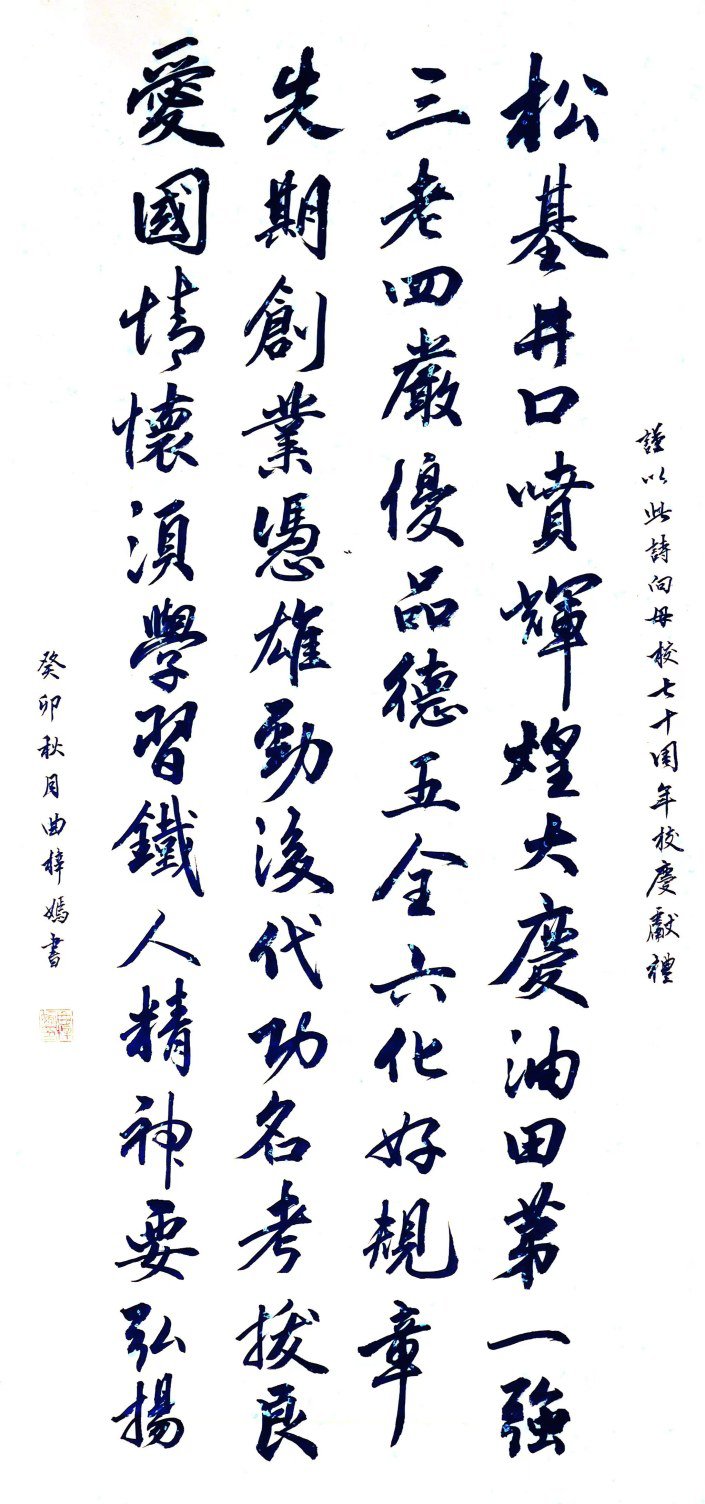 謹以此詩向母校七十周年校慶獻禮
松基井口噴輝煌大慶油田第一強
三老四嚴優品德五全六化好規章
先期創業憑雄勁後代功名考拔良
愛國情懷須學習鐵人精神要弘揚
癸卯秋月曲梓嫣書